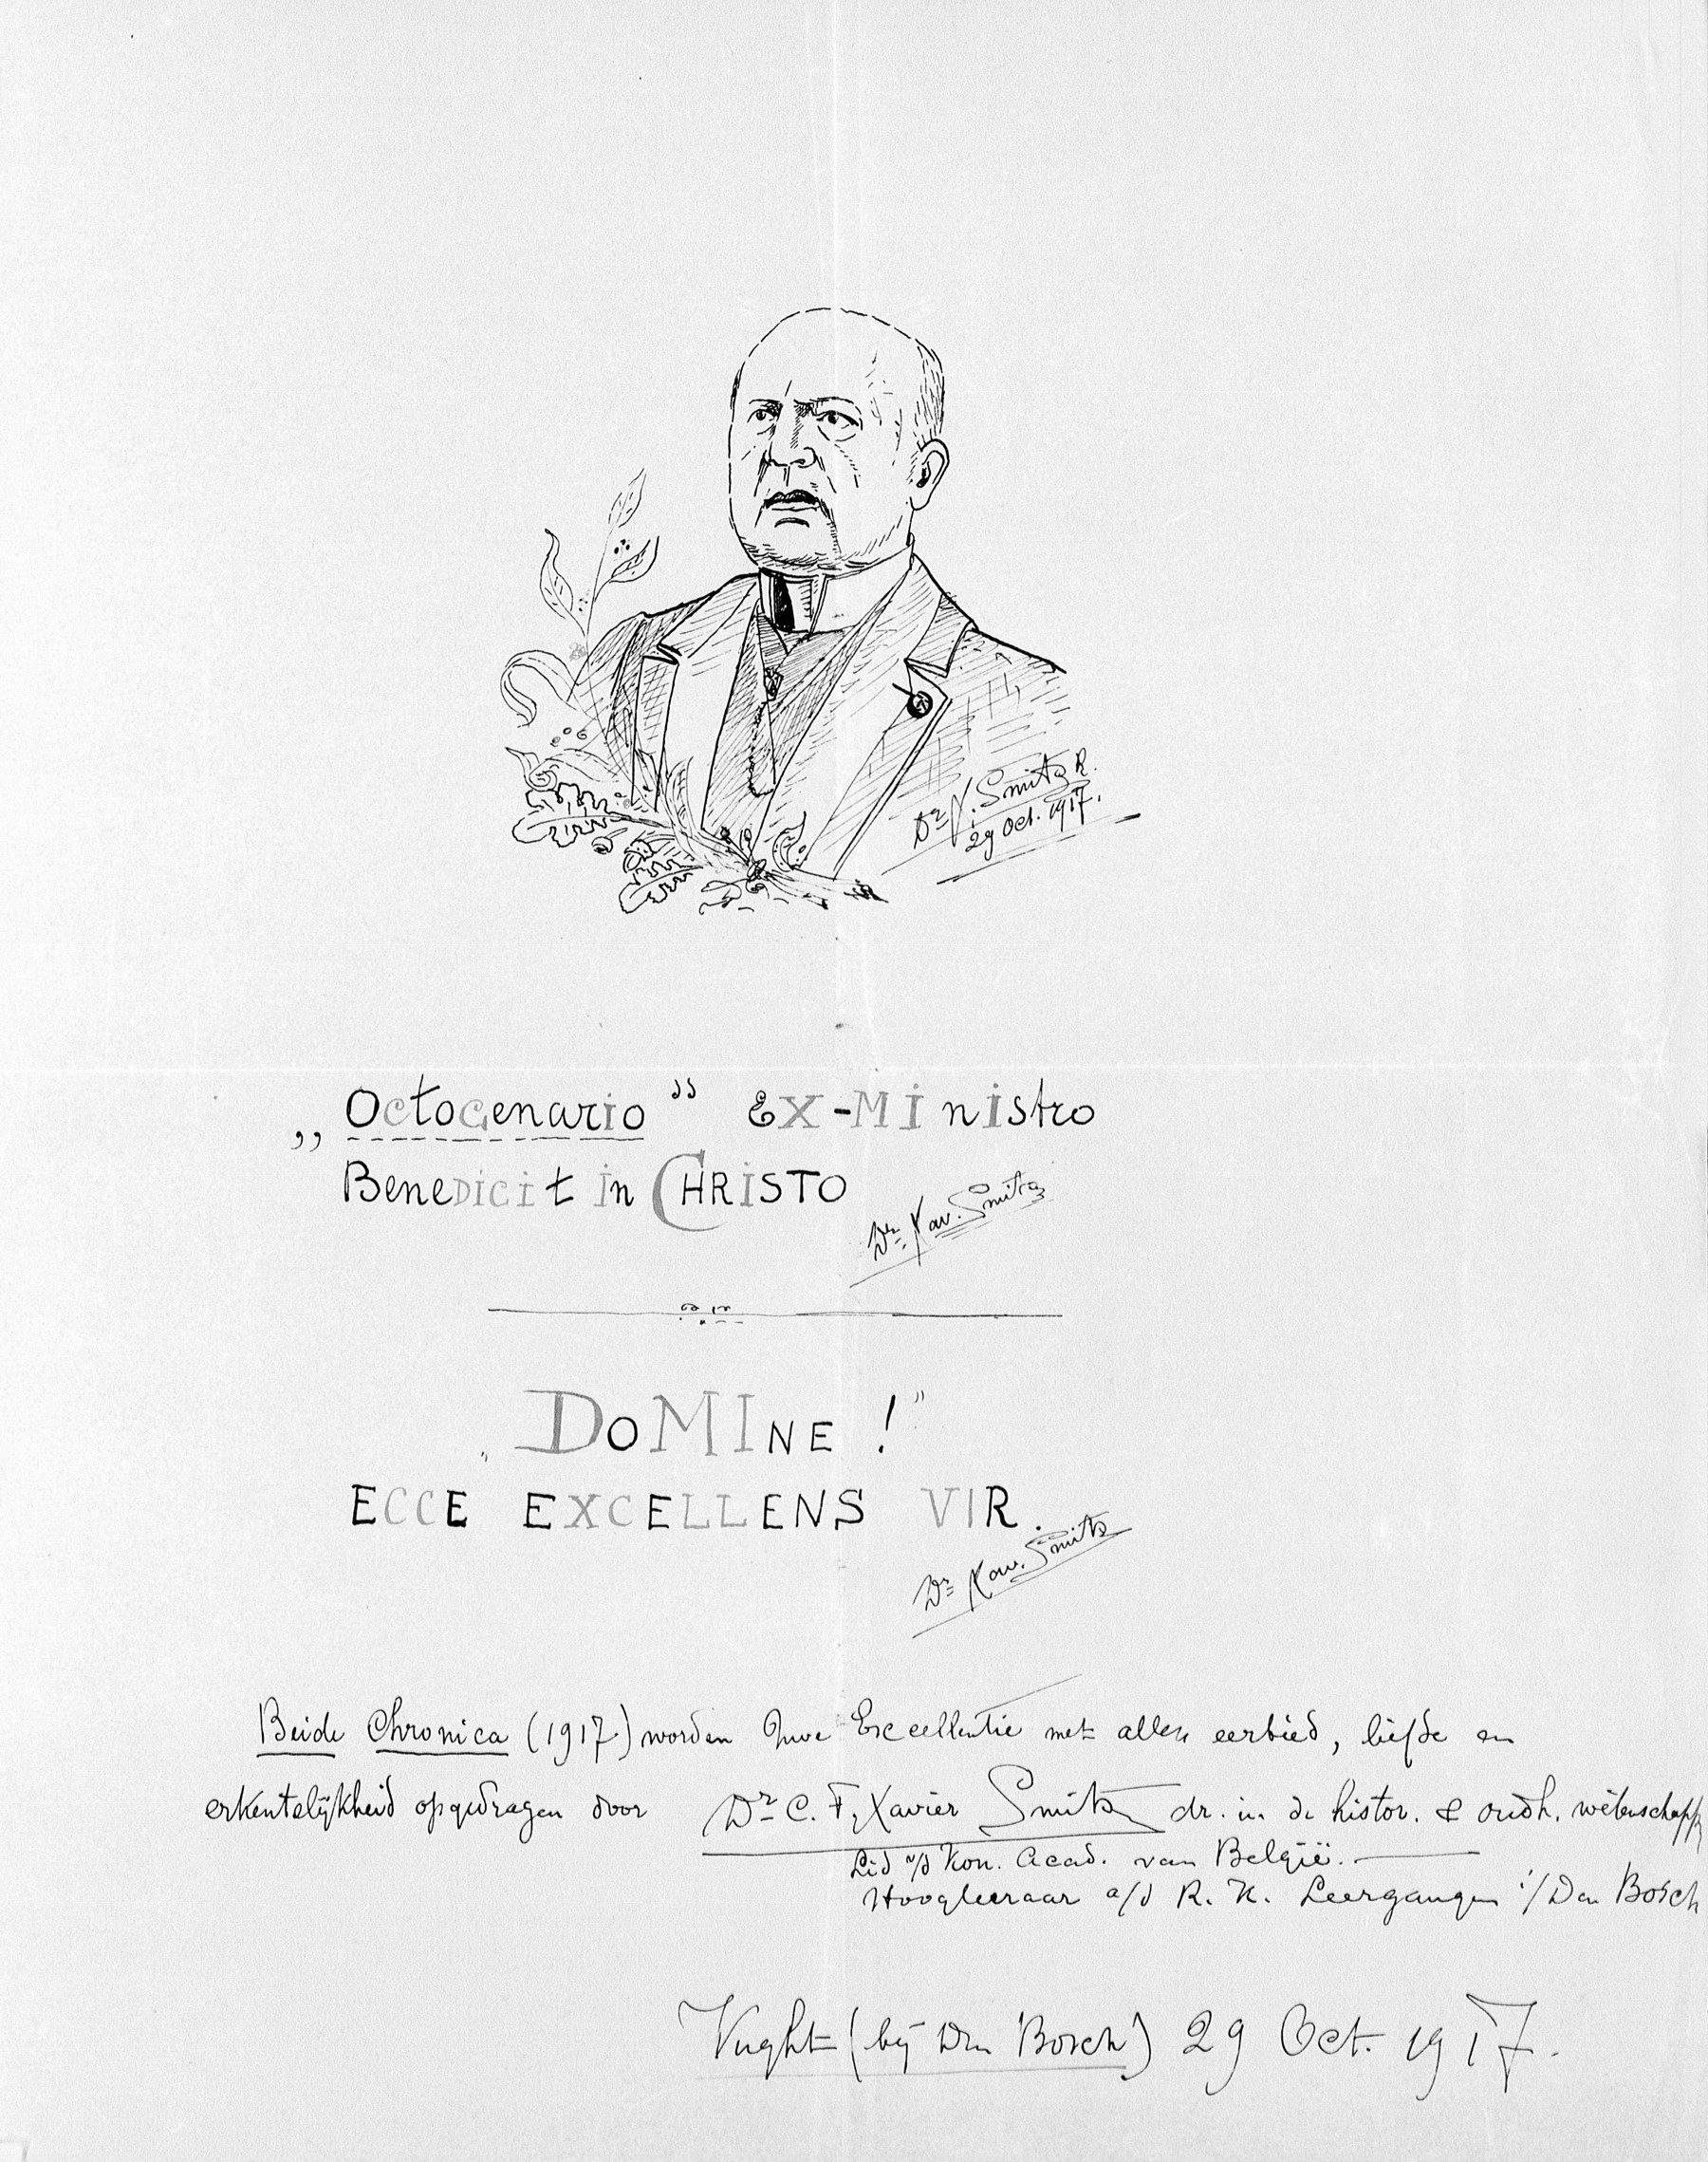 Dr X. Smits R.
29 Oct. 1917.
„Octogenario” Ex-Ministro
Benedicit in Christo
Dr. Xav. Smits
„DoMIne !”
ECCE EXCELLENS VIR.
Dr Xav. Smits
Beide Chronica (1917) worden Uwe Excellentie met allen eerbied, liefde en
erkentelijkheid opgedragen door Dr C. F. Xavier Smits dr. in de histor. & oudh. wetenschapp
Lid v/d Kon. Acad. van België.
Hoogleeraar a/d R. K. Leergangen i/ Den Bosch
Vught (bij Den Bosch) 29 Oct. 1917.